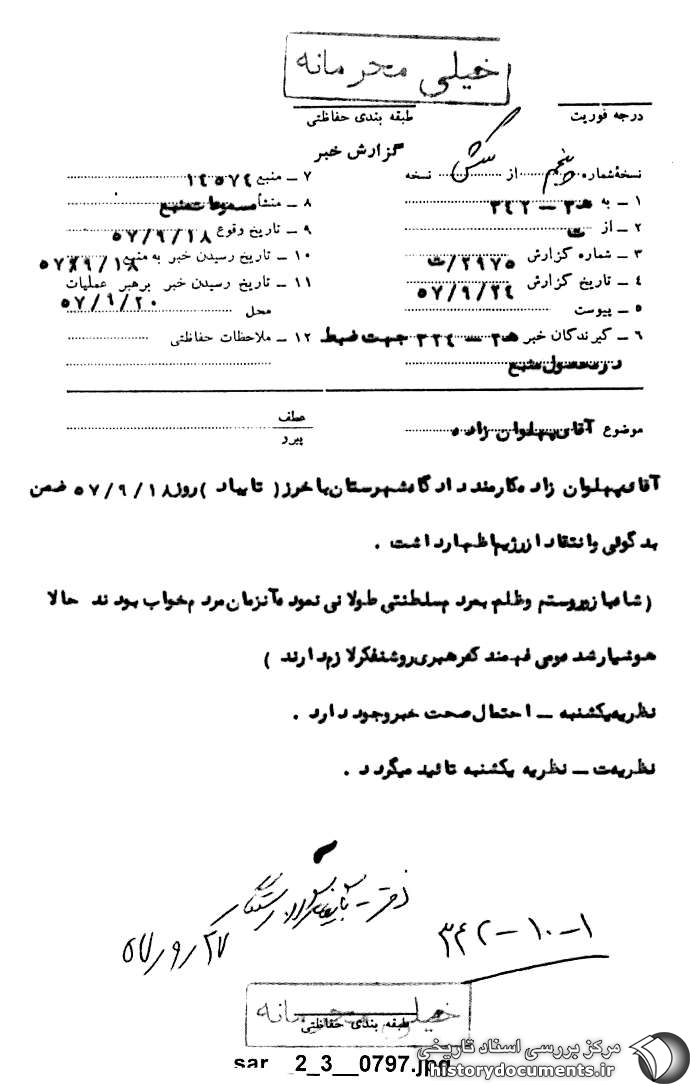 خیلی محرمانه
درجه فوریت
طبقه بندی حفاظتی
گزارش خبر
نسخهٔ شماره پنجم از شش نسخه
۱ – به ۳ه – ۳۴۲
۲ – از ت
۳ – شماره گزارش ۲۹۷۵/ت
۴ – تاریخ گزارش ۵۷/۹/۲۴
۵ – پیوست
۶ – گیرندگان خبر ۳ه – ۳۳۴ جهت ضبط
در محصول منبع
۷ – منبع ۱۴۵۷۴
۸ – منشأ مسموعات منبع
۹ – تاریخ وقوع ۵۷/۹/۱۸
۱۰ – تاریخ رسیدن خبر به منبع ۵۷/۹/۱۸
۱۱ – تاریخ رسیدن خبر برهبر عملیات
محل ۵۷/۹/۲۰
۱۲ – ملاحظات حفاظتی
موضوع آقای پهلوان زاده
عطف
پیرو
آقای پهلوان زاده کارمند دادگاه شهرستان باخرز ( تایباد ) روز ۵۷/۹/۱۸ ضمن
بدگوئی و انتقاد از رژیم اظهار داشت .
( شاه با زیر و ستم و ظلم به مردم سلطنتی طولانی نموده آنزمان مردم خواب بودند حالا
هوشیار شده و می فهمند که رهبری روشنفکر لازم دارند )
نظریه یکشنبه – احتمال صحت خبر وجود دارد .
نظریه ت – نظریه یکشنبه تائید میگردد .
۱–۱۰–۳۴۲
خیلی محرمانه
طبقه بندی حفاظتی
sar _2_3__0797.jpg
مرکز بررسی اسناد تاریخی
historydocuments.ir